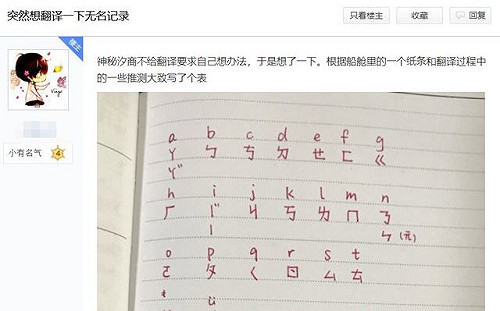 突然想翻译一下无名记录
只看楼主 收藏 回复
楼主
神秘汐商不给翻译要求自己想办法，于是想了一下。根据船舱里的一个纸条和翻译过程中
的一些推测大致写了个表
小有名气 4
a b c d e f g
ㄚ ㄅ ㄘ ㄉ ㄝ ㄈ ㄍ
h i j k l m n
ㄏ ㄐ ㄎ ㄌ ㄇ ㄋ
ㄣ (元)
o p q r s t
ㄛ ㄆ ㄑ ㄖ ㄙ ㄊ
ü